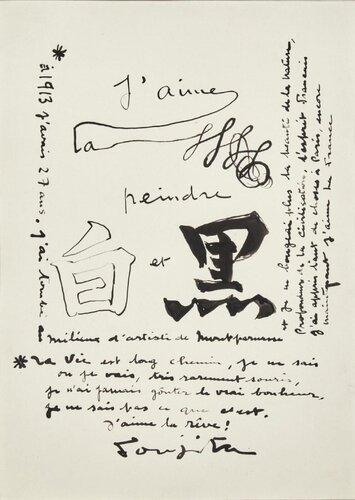 J'aime
la
peindre
白 et 黒
* En 1913 j'avais 27 ans. j'ai tombé au
milieux d'artiste de Montparnasse
* et je ne songeai plus la beauté de la nature,
Profondeur de la Civilisation, L'esprit Français
j'ai appris tant de choses à Paris, encore
maintenant j'aime la France
* La Vie est long chemin, je ne sais
ou je vais, très rarement souris,
je n'ai jamais goûter le vrai bonheur,
je ne sais pas ce que c'est.
J'aime la rêve!
Foujita